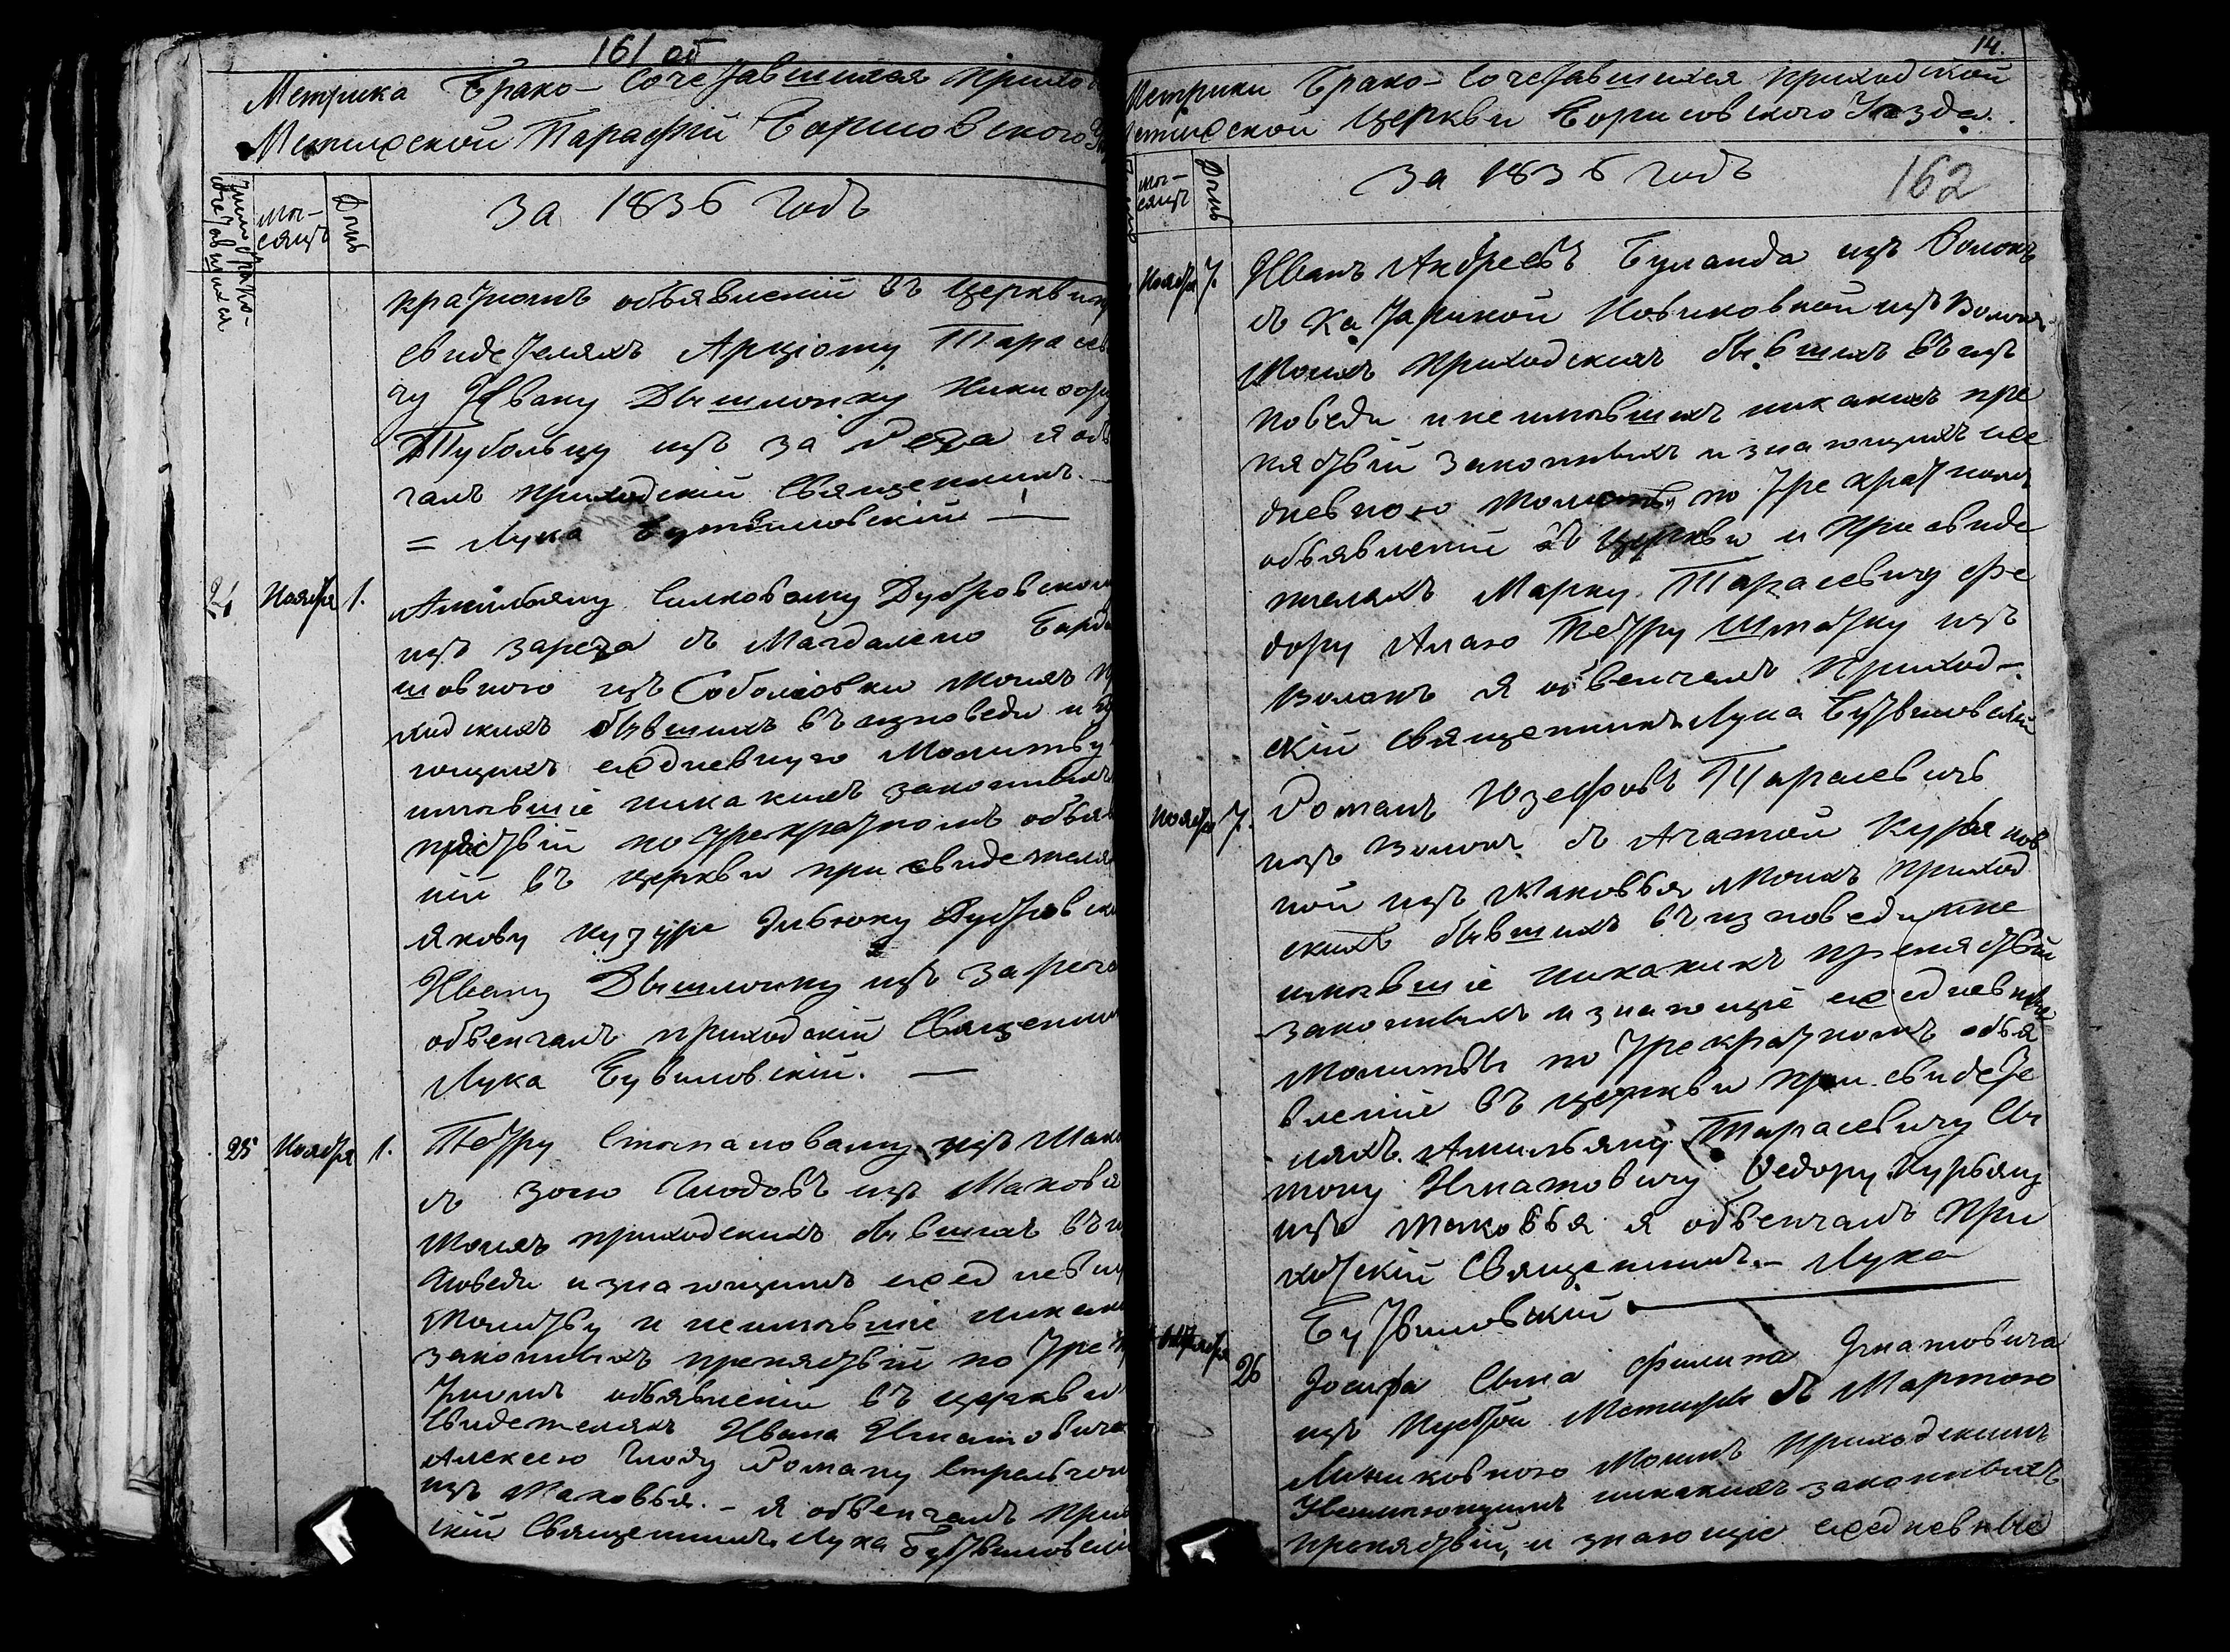 161 об
Метрика Брако-Сочетавшихся Прихо
Мстижской Парафіи Борисовского
Число Брако-
сочетавшихся
мѣ-
сяцъ
День
За 1836 годъ
кратномъ объявленіи въ Церкви
свидетеляхъ Арціому Тарасев
чу Ивану Дышлонку Никифору
Тубольцу изъ за реза я об
чалъ приходскій Священникъ.
= Лука Бутвиловскій —
24 Ноября 1. Амильяну Силковому Дубровском
изъ зареза съ Магдалено
шовною изъ Соболювки моихъ п
ходскихъ бывшихъ въ изповеди и з
ющихъ ежедневную Молитву
имѣвшіе никакихъ законныхъ
по трекратномъ объяв
ніи въ церкви при свидетеля
Якову Кузуре Дубровск
Ивану Дышлонку изъ зареча
обвенчалъ приходскій Священни
Лука Бувиловскій. —
25 Ноября 1. Петру Стапановому изъ Мако
съ Зою изъ Маковя
моихъ приходскихъ бывшихъ въ и
поведи и знающимъ ежедневну
Молитву и неимѣвшіе никаки
законныхъ препятствій по тре
тномъ объявленіи въ церкви
Свидетеляхъ Ивана Игнатовича
Алексею Глоду Роману Стрельчон
изъ Маковья. – я обвенчалъ при
скій Священникъ Лука Бутвиловскі
14.
Метрики Брако-Сочетавшихся приходской
Мстижской Церкви Борисовского Уезда.
мѣ-
сяцъ
День
За 1836 годъ
162
Ноября 7. Иванъ Андреевъ Буланда изъ Волокъ
съ Катариной Новиковной изъ Волокъ
Моихъ приходскихъ бывшихъ въ изъ
поведи и неимѣвшихъ никакихъ пре
пятствій законныхъ и знающихъ еже
дневною по трекратномъ
объявленіи въ церкви и при свиде
теляхъ Марку Тарасевичу Фе
дору Петру изъ
Волокъ я обвенчалъ приход-
скій священникъ Лука Бутвиловскій
Ноября 7. Романъ Юзефовъ Тарасевичъ
изъ Волокъ съ Агатой Курьянов
ной изъ Маковья Моихъ приход
скихъ бывшихъ въ изповеди и не
имѣвшіе никакихъ препятствій
законныхъ и знающіе ежедневные
Молитвы по трекратномъ объя
вленіе въ церкви при свидете
ляхъ Амильяну Тарасевичу Си
мону Игнатовичу Федору Курьяну
изъ Маковья я обвенчалъ при
ходскій Священникъ. – Лука
Бутвиловскій
26 Іосифа Сына Филипа Игнатовича
изъ Мстижъ съ Мартою
моимъ приходскимъ
Неимѣющимъ никакихъ законныхъ
препятствій, и знающіе ежедневные